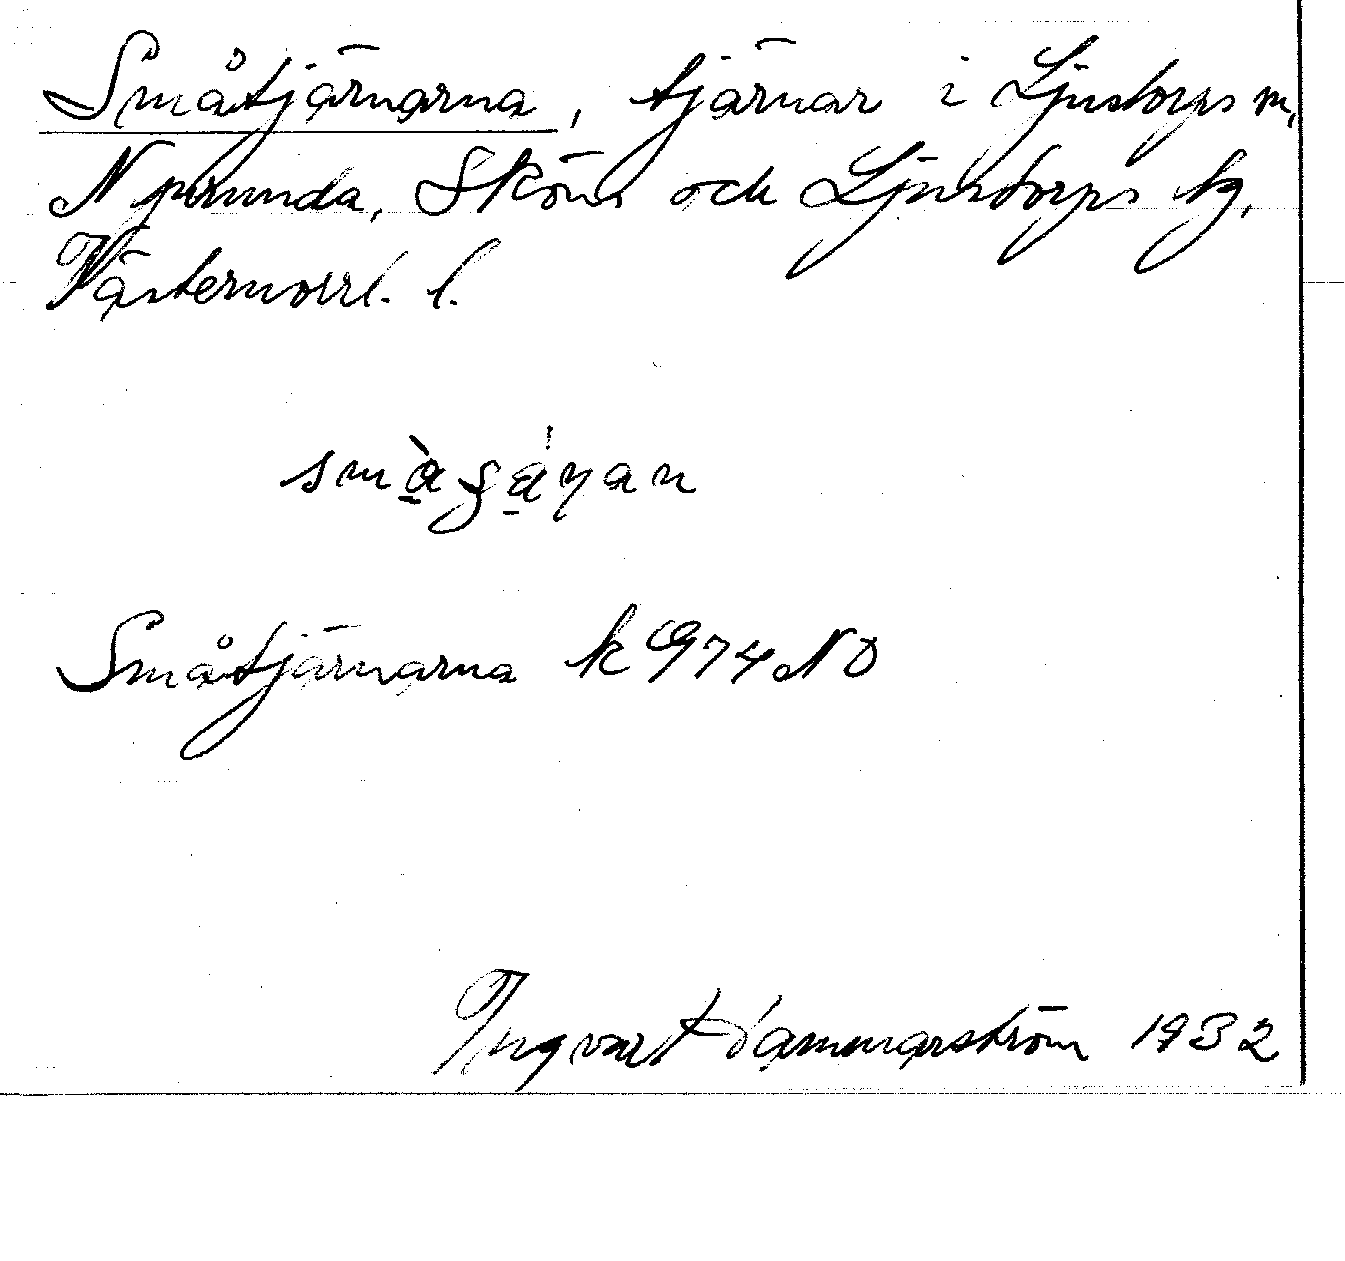 Småtjärnarna, tjärnar i Ljustorps m,
Njurunda, Sköns och Ljustorps tg,
Västernorrl. l.
Småtjärnarna k 974 NO
Ingvart Hammarström 1932